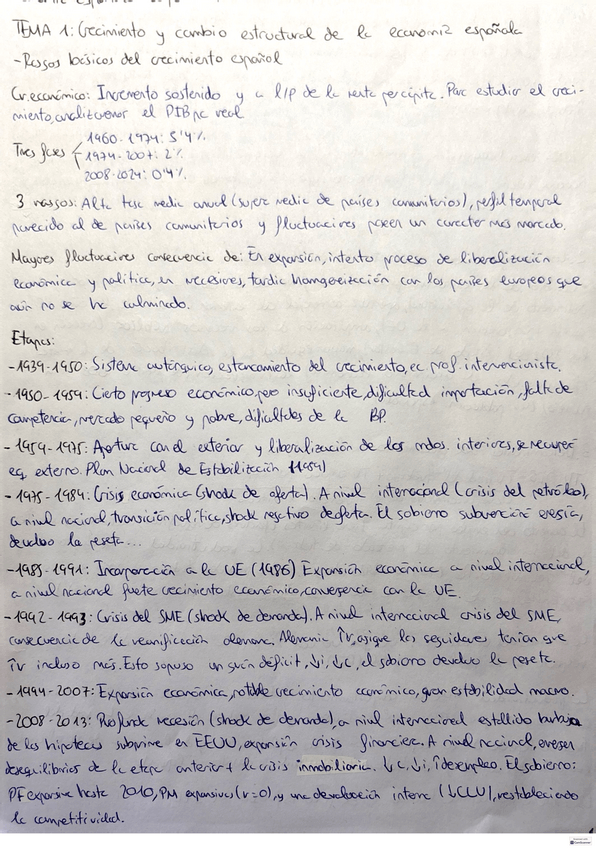 TEMA 1: Crecimiento y cambio estructural de la economía española
- Rasgos básicos del crecimiento español
Cr. económico: Incremento sostenido y a l/p de la renta per cápita. Para estudiar el creci-
miento, analizaremos el PIBpc real
Tres fases
1960-1974: 5'4%
1974-2007: 2%
2008-2024: 0'4%
3 rasgos: Alta tasa media anual (supera media de países comunitarios), perfil temporal
parecido al de países comunitarios y fluctuaciones poseen un caracter más marcado.
Mayores fluctuaciones consecuencia de: En expansión, intenso proceso de liberalización
económica y política, en recesiones, tardía homogeneización con los países europeos que
aún no se ha culminado.
Etapas:
- 1939-1950: Sistema autárquico, estancamiento del crecimiento, ec prof. intervencionista.
- 1950-1959: Cierto progreso económico, pero insuficiente, dificultad importación, falta de
competencia, mercado pequeño y pobre, dificultades de la BP.
- 1959-1975: Apertura con el exterior y liberalización de los mdos. interiores, se recuperó
eq. externo. Plan Nacional de Estabilización (1959)
- 1975-1984: Crisis económica (shock de oferta). A nivel internacional (crisis del petróleo),
a nivel nacional, transición política, shock negativo de oferta. El gobierno subvencionó energía,
devaluó la peseta...
- 1985-1991: Incorporación a la UE (1986) Expansión económica a nivel internacional,
a nivel nacional fuerte crecimiento económico, convergencia con la UE.
- 1992-1993: Crisis del SME (shock de demanda). A nivel internacional crisis del SME,
consecuencia de la reunificación alemana. Alemania ↑r, así que los seguidores tenían que
↑r incluso más. Esto supuso un gran déficit, ↓i, ↓c, el gobierno devaluó la peseta.
- 1994-2007: Expansión económica, notable crecimiento económico, gran estabilidad macro.
- 2008-2013: Profunda recesión (shock de demanda), a nivel internacional estallido burbuja
de las hipotecas subprime en EEUU, expansión crisis financiera. A nivel nacional,
desequilibrios de la etapa anterior + la crisis inmobiliaria. ↓c, ↓i, ↑desempleo. El gobierno:
PF expansiva hasta 2010, PM expansiva (r=0), y una devaluación interna (↓CLU), restableciendo
la competitividad.